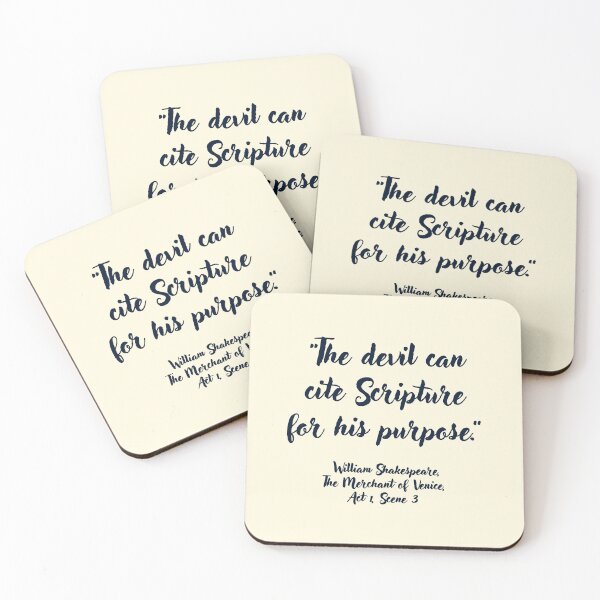 "The devil can
cite Scripture
for his purpose
"The devil can
cite Scripture
for his purpose."
William Shakespeare
"The devil can
cite Scripture
for his purpose."
William Shakespeare
The Merchant of
Act 1, Scene
"The devil can
cite Scripture
for his purpose."
William Shakespeare,
The Merchant of Venice,
Act 1, Scene 3